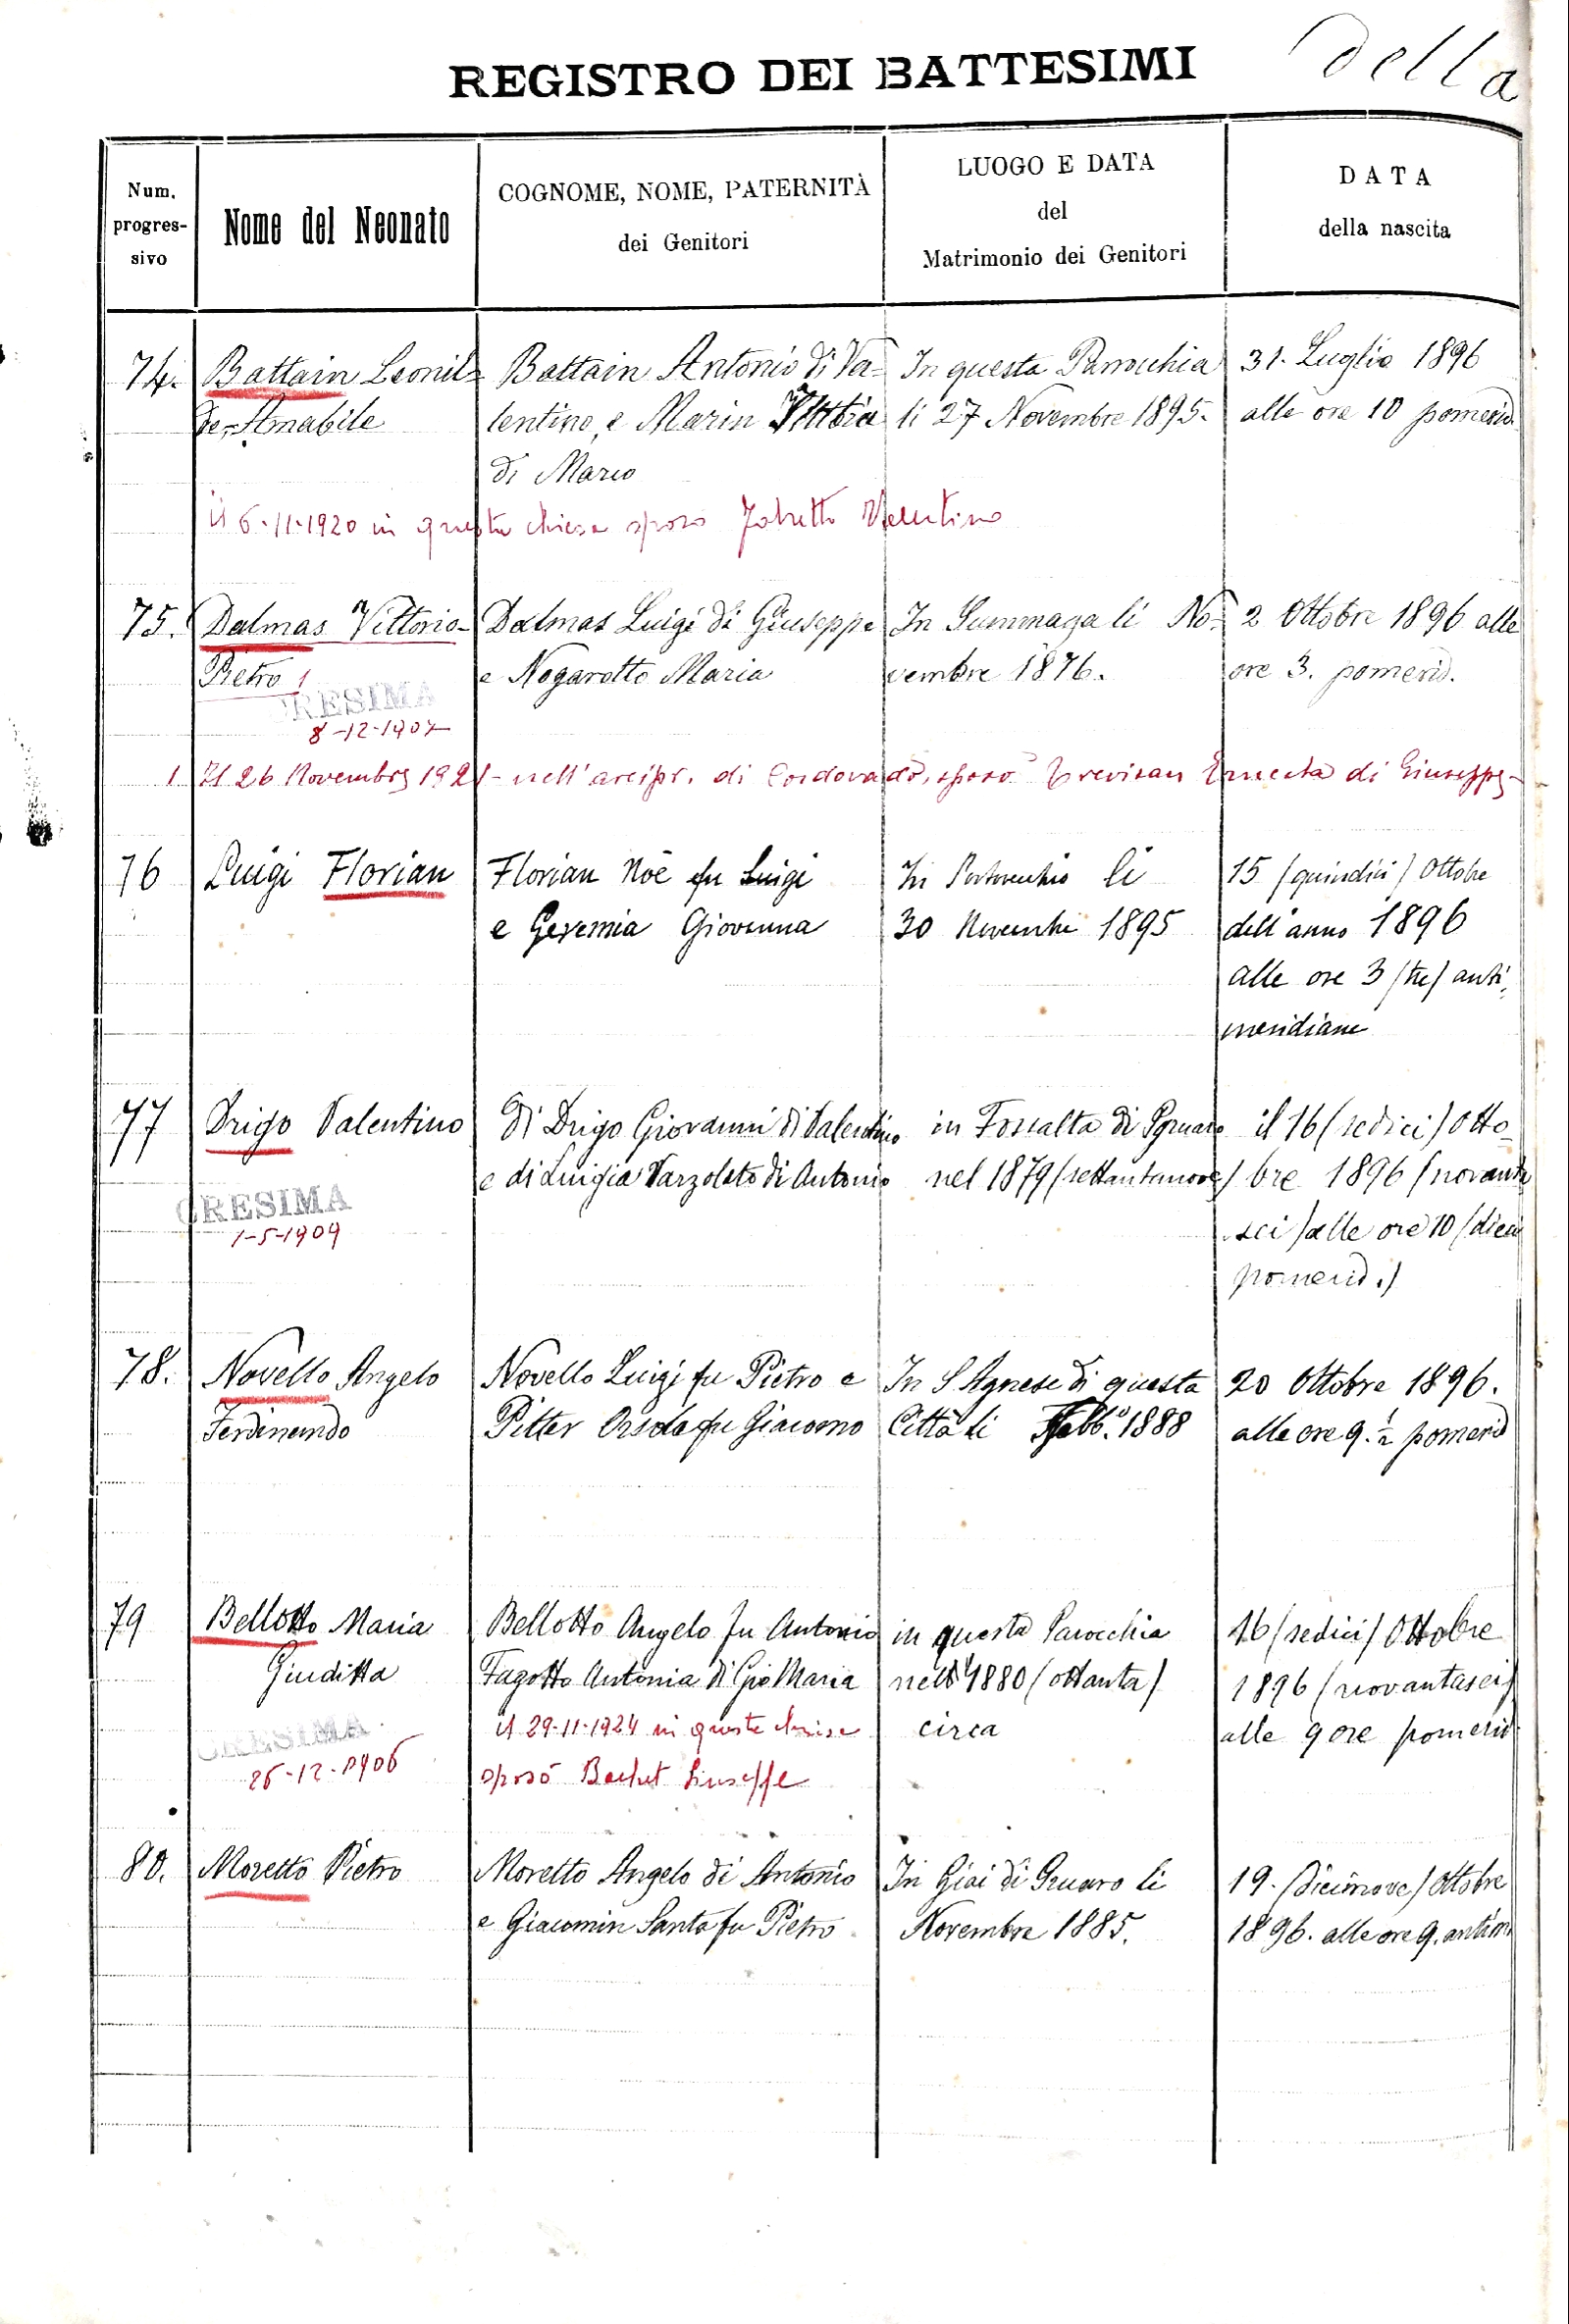 della
REGISTRO DEI BATTESIMI
Num.
progres-
sivo
Nome del Neonato
COGNOME, NOME, PATERNITÀ
dei Genitori
LUOGO E DATA
del
Matrimonio dei Genitori
DATA
della nascita
74. Battain Leonil= Battain Antonio di Va= In questa Parrocchia 31. Luglio 1896
de, Amabile lentino, e Marin Vittoria li 27 Novembre 1895. alle ore 10 pomerid.
di Marco
il 6-11-1920 in questa chiesa sposò Valentino
75. Dalmas Vittorio- Dalmas Luigi di Giuseppe In Summaga li No= 2 Ottobre 1896 alle
Pietro 1 e Nogarotto Maria vembre 1876. ore 3. pomerid.
CRESIMA
8-12-1907
1 Il 26 Novembre 1921- nell'arcipr. di Cordovado, sposò Trevisan Ernesta di Giuseppe-
76 Luigi Florian Florian Noè fu Luigi In Portovecchio li 15 (quindici) Ottobre
e Geremia Giovanna 30 Novembre 1895 dell'anno 1896
alle ore 3 (tre) anti,
meridiane
77 Drigo Valentino Di Drigo Giovanni di Valentino in Fossalta di Pgruaro il 16 (sedici) Otto-
e di Luigia Varzolato di Antonio nel 1879 (settantanove) bre 1896 (novanta
CRESIMA
sei) alle ore 10 (dieci
1-5-1909
pomerid.)
78. Novello Angelo Novello Luigi fu Pietro e In S Agnese di questa 20 Ottobre 1896.
Ferdinando Pitter Orsola fu Giacomo Città li Febb.º 1888 alle ore 9.½ pomerid
79 Bellotto Maria Bellotto Angelo fu Antonio in questa Parocchia 16 (sedici) Ottobre
Giuditta Fagotto Antonia di Gio Maria nell' 1880 (ottanta) 1896 (novantasei)
il 29-11-1924 in questa chiesa circa alle 9 ore pomerid
CRESIMA
26-12-1906 sposò Giuseppe
80. Moretto Pietro Moretto Angelo di Antonio In Giai di Gruaro li 19. (dicinove) Ottobre
e Giacomin Santa fu Pietro Novembre 1885. 1896. alle ore 9. antim